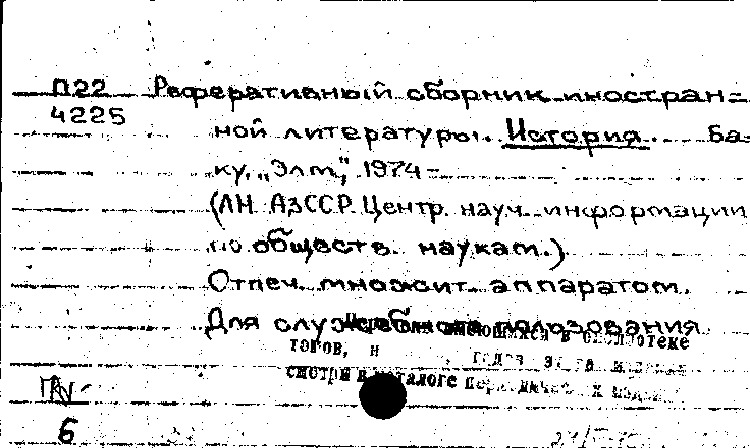 П22 Реферативный сборник иностран=
4225
ной литературы. История. Ба-
ку, „Элм", 1974-
(АН АзССР. Центр науч. информации
по обществ. наукам.)
Отпеч. множит. аппаратом.
Для служебного пользования
имеющихся в библиотеке
томов, н
смотри в каталоге
6